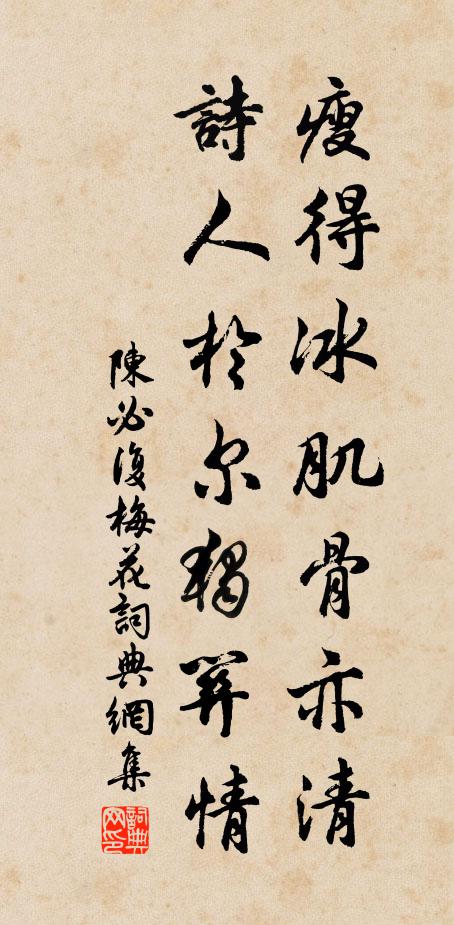 瘦得冰肌骨亦清
詩人於尔獨關情
陳必復梅花詞典網集
詞典网印